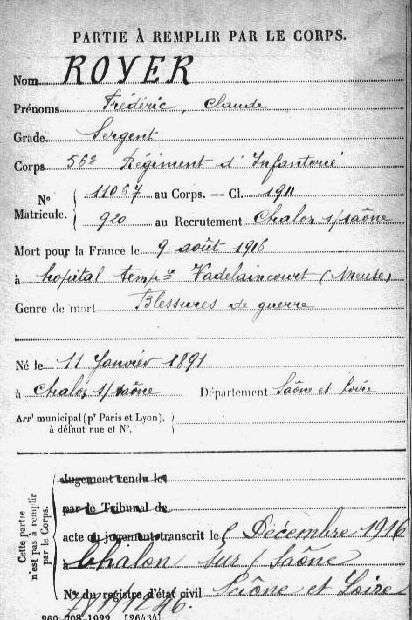 PARTIE À REMPLIR PAR LE CORPS.
Nom ROYER
Prénoms Frédéric, Claude
Grade Sergent
Corps 56e Régiment d'Infanterie
N° Matricule. 11057 au Corps. — Cl. 1911
920 au Recrutement Chalon s/saône
Mort pour la France le 9 août 1916
à hôpital tempre Vadelaincourt (Meuse)
Genre de mort Blessures de guerre
Né le 11 Janvier 1891
à Chalon s/saône Département Saône et Loire
Arrt municipal (pr Paris et Lyon),
à défaut rue et N°.
Cette partie n'est pas à remplir par le Corps.
Jugement rendu le
par le Tribunal de
acte ou jugement transcrit le Décembre 1916
à Chalon sur Saône
Saône et Loire
N° du registre d'état civil